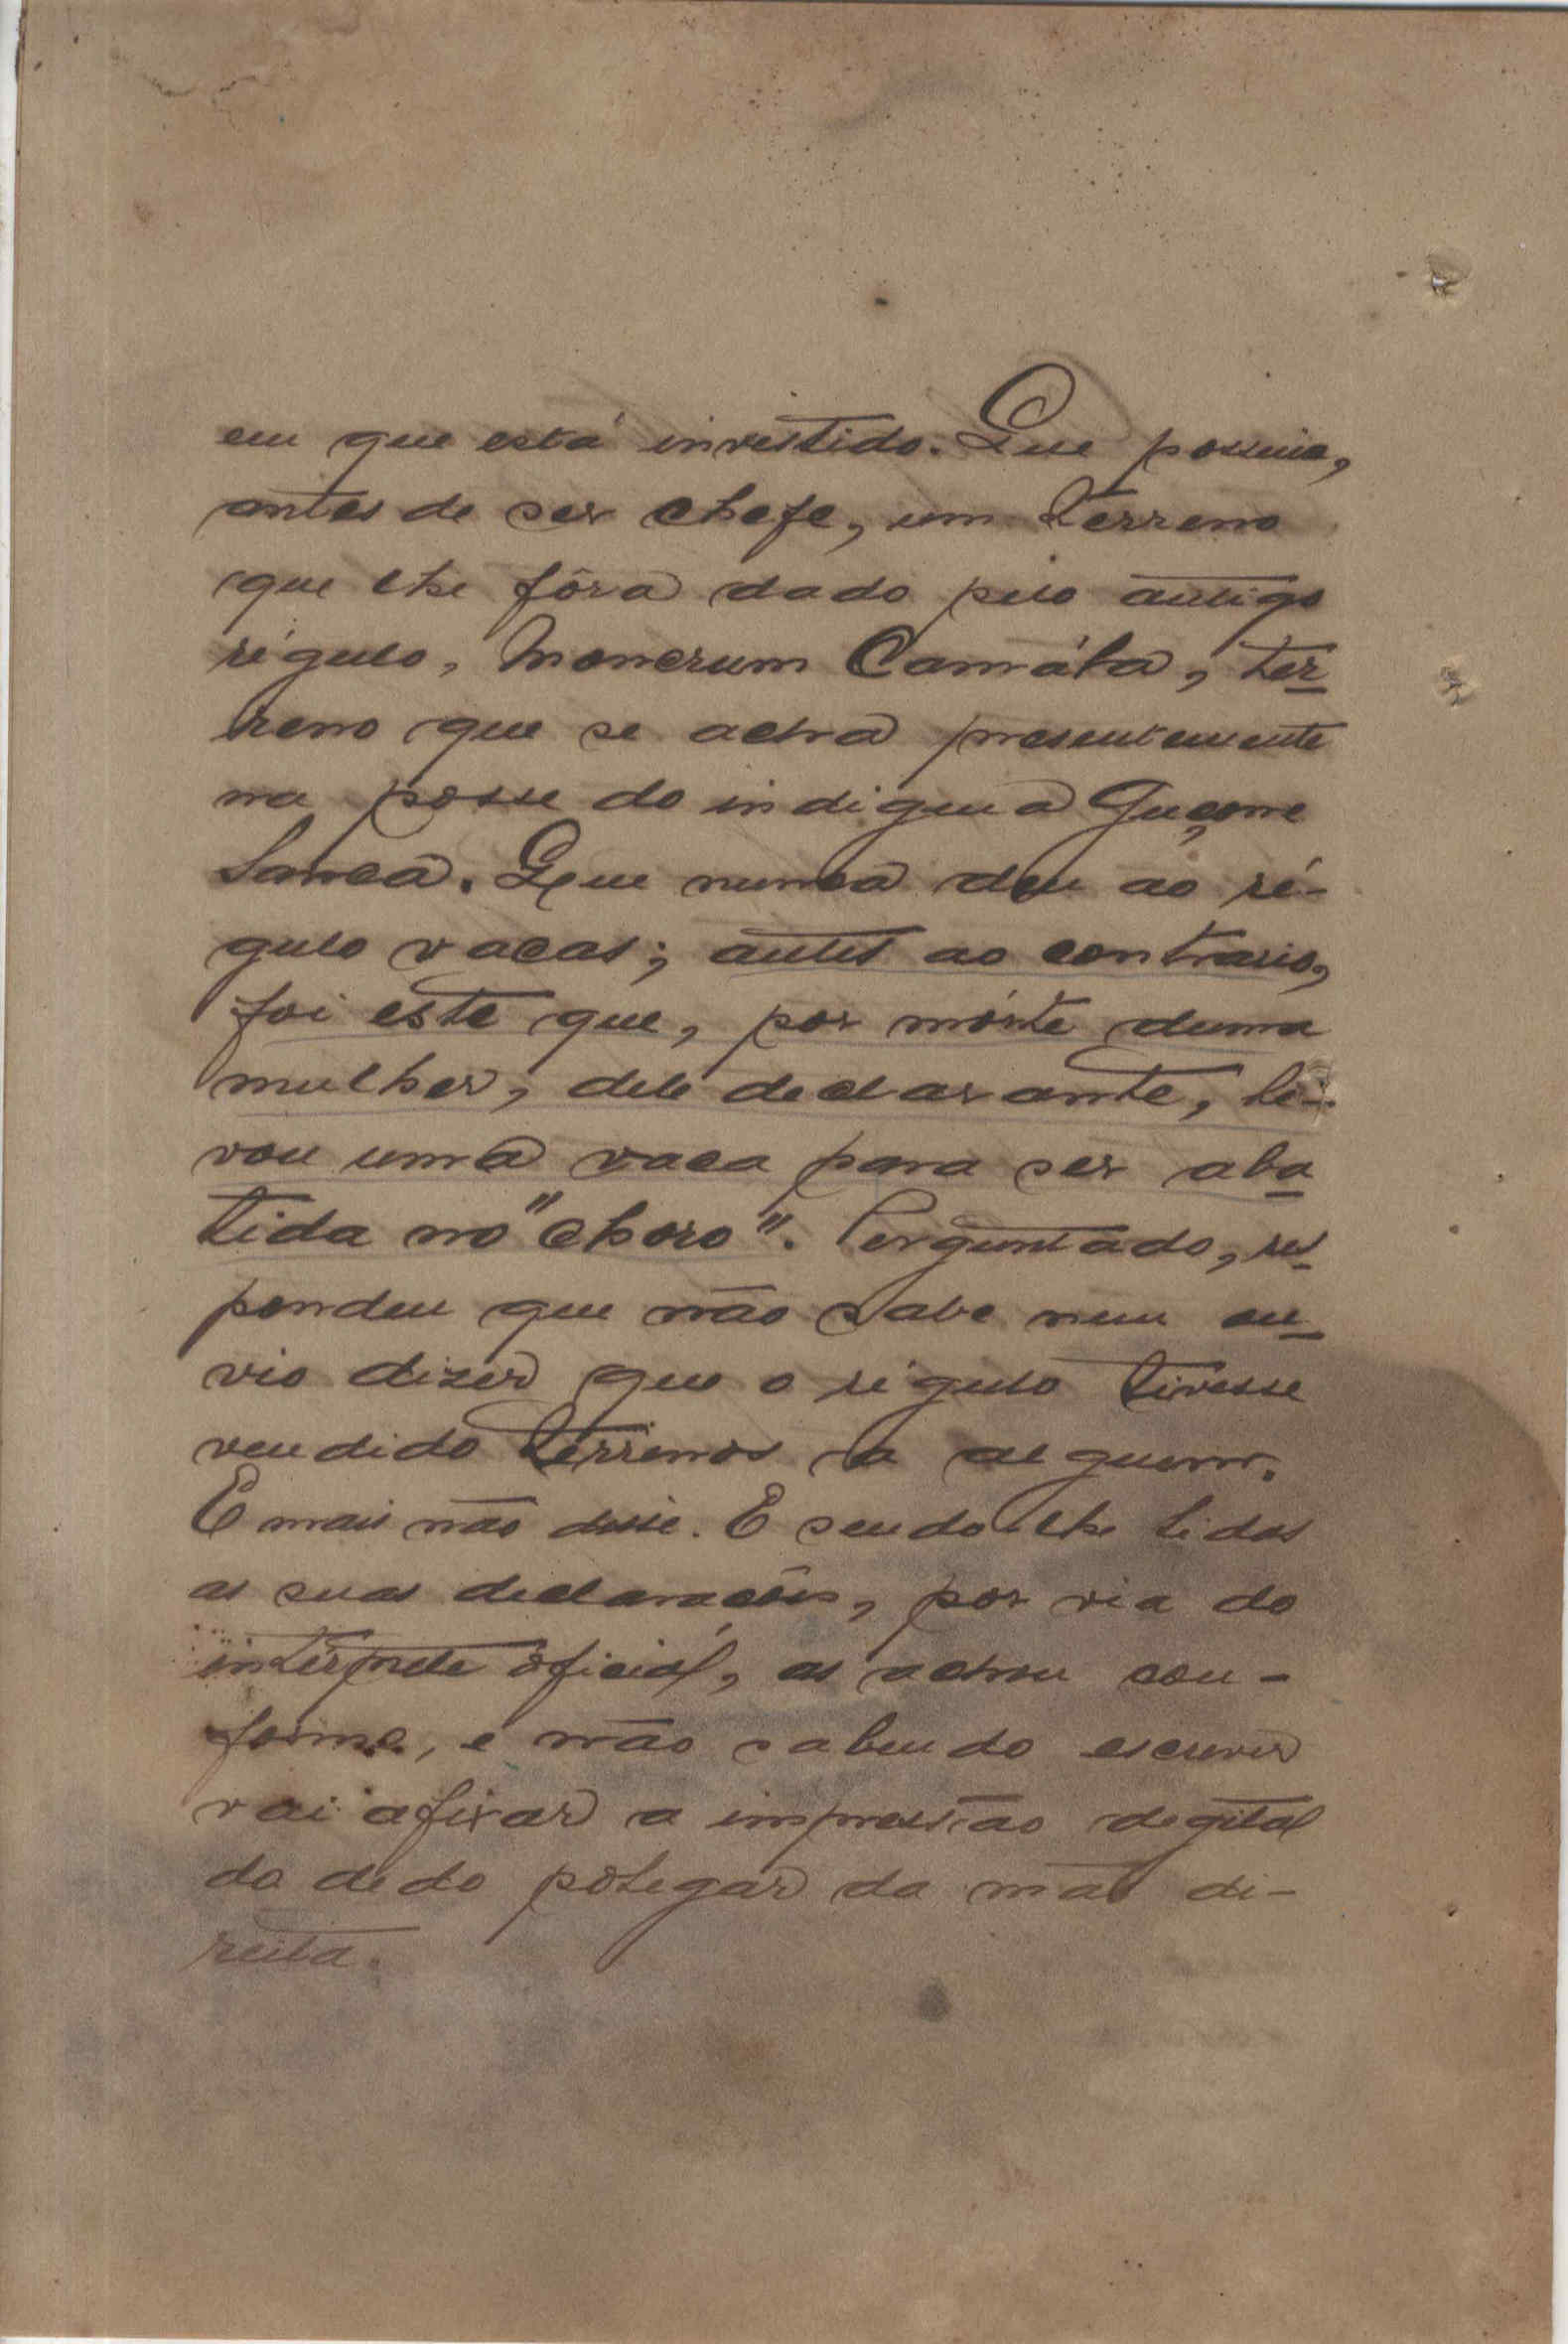 em que está investido. Que possuia,
antes de ser chefe, um terreno
que lhe fôra dado pelo antigo
régulo, Moncrum Camála, ter-
reno que se acha presentemente
na posse do indigena Guçome
Sanca. Que nunca deu ao ré-
gulo vacas; antes ao contrario,
foi este que, por mórte duma
mulher, dele declarante, le-
vou uma vaca para ser aba-
tida no "choro". Perguntado, res-
pondeu que não sabe nem ou-
vio dizer que o régulo tivesse
vendido terrenos a alguem.
E mais não disse. E sendo-lhe lidas
as suas declarações, por via do
intérprete oficial, as achou con-
forme, e não sabendo escrever
vai afixar a impressão degital
do dedo polegar da mão di-
reita.